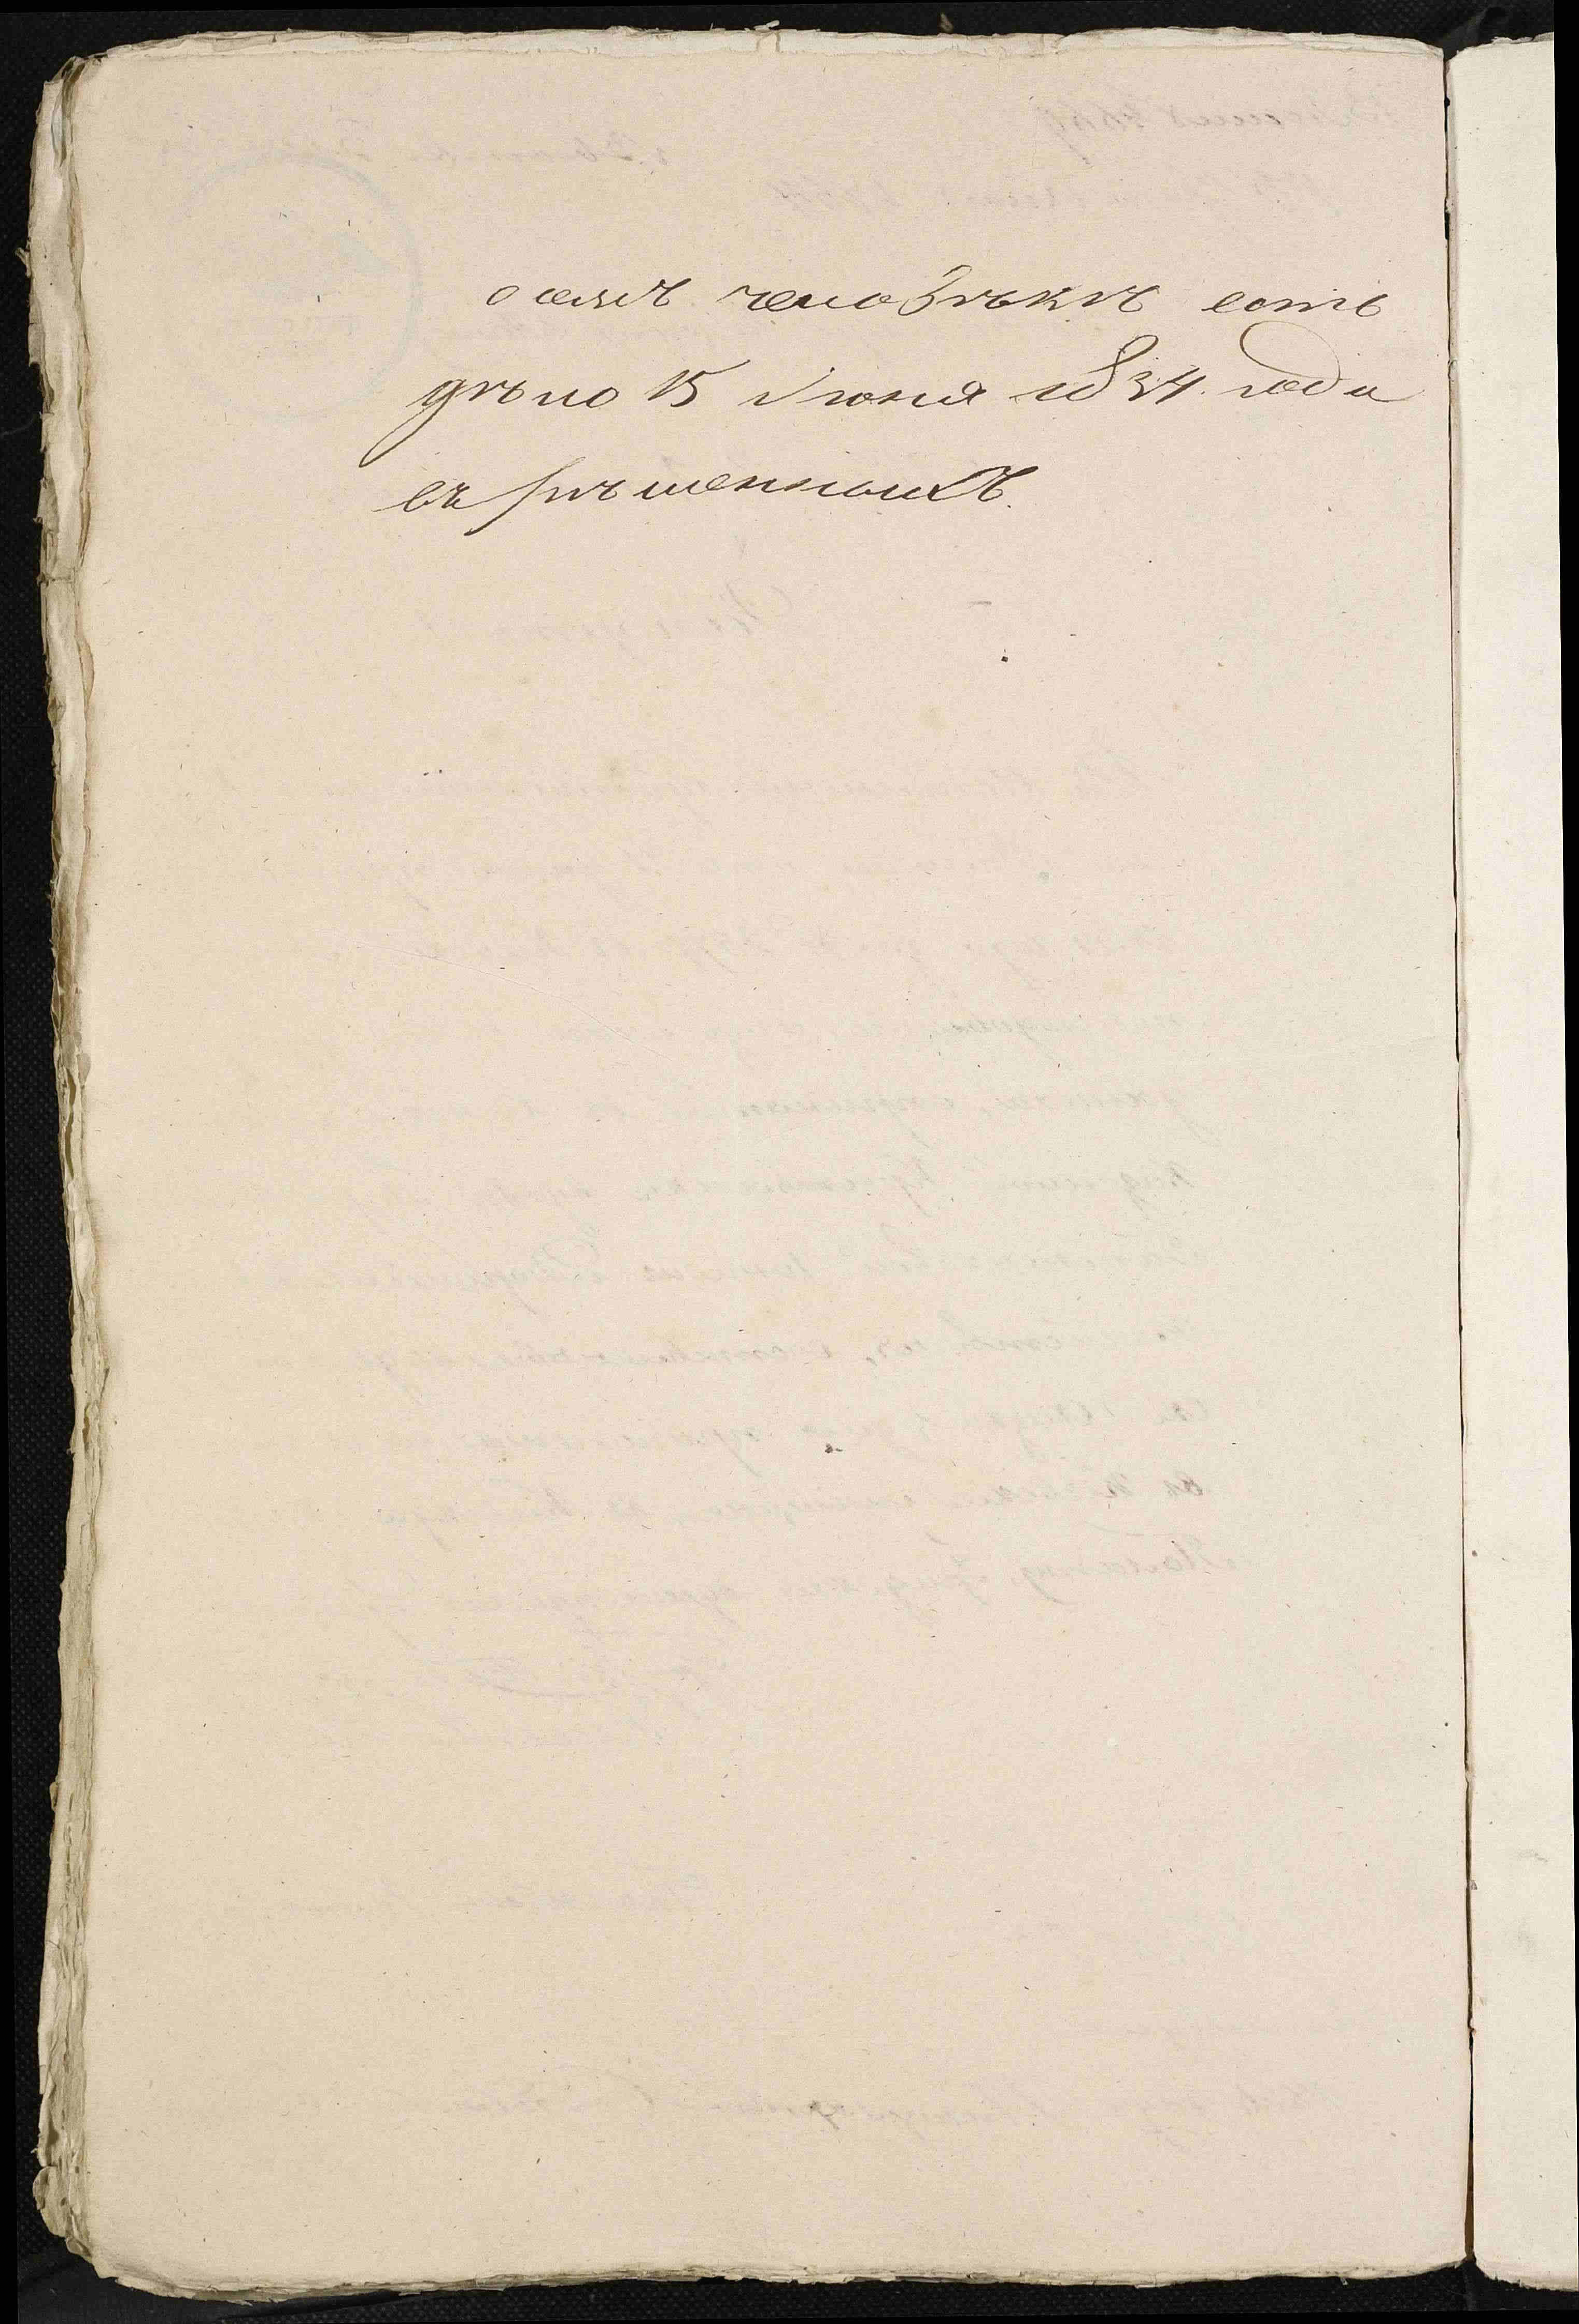 о семъ человѣкѣ есть
дѣло 15 Iюня 1834 года
въ рѣшенныхъ.